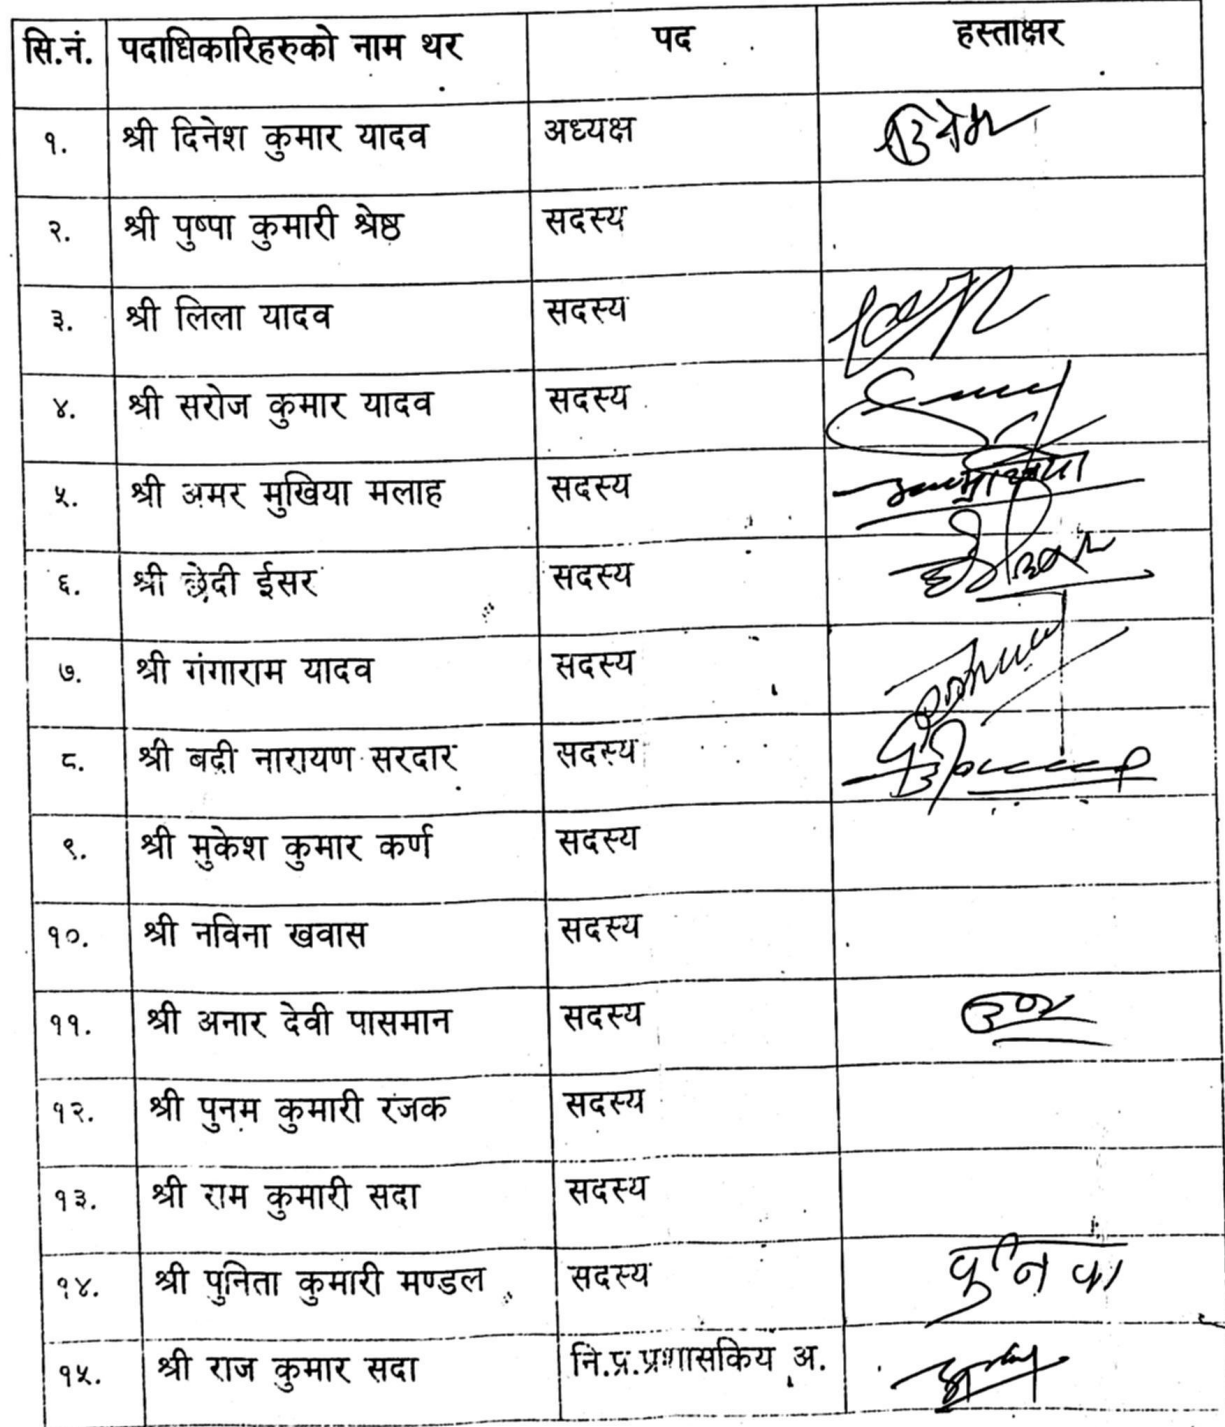 सि.नं. पदाधिकारिहरुको नाम थर पद हस्ताक्षर
१. श्री दिनेश कुमार यादव अध्यक्ष
२. श्री पुष्पा कुमारी श्रेष्ठ सदस्य
३. श्री लिला यादव सदस्य
४. श्री सरोज कुमार यादव सदस्य
५. श्री अमर मुखिया मलाह सदस्य
६. श्री छेदी ईसर सदस्य
७. श्री गंगाराम यादव सदस्य
८. श्री बद्री नारायण सरदार सदस्य
९. श्री मुकेश कुमार कर्ण सदस्य
१०. श्री नविना खवास सदस्य
११. श्री अनार देवी पासमान सदस्य
१२. श्री पुनम कुमारी रजक सदस्य
१३. श्री राम कुमारी सदा सदस्य
१४. श्री पुनिता कुमारी मण्डल सदस्य
१५. श्री राज कुमार सदा नि.प्र.प्रशासकिय अ.